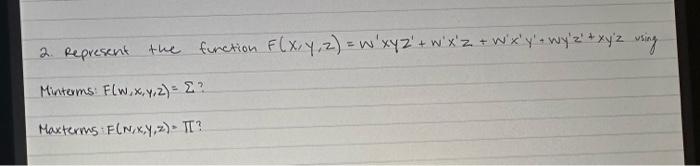 2. Represent the function F(x,y,z) = w'xyz' + w'x'z + w'x'y' + wy'z' + xy'z using
Minterms: F(w,x,y,z) = Σ?
Maxterms: F(w,x,y,z) = Π?